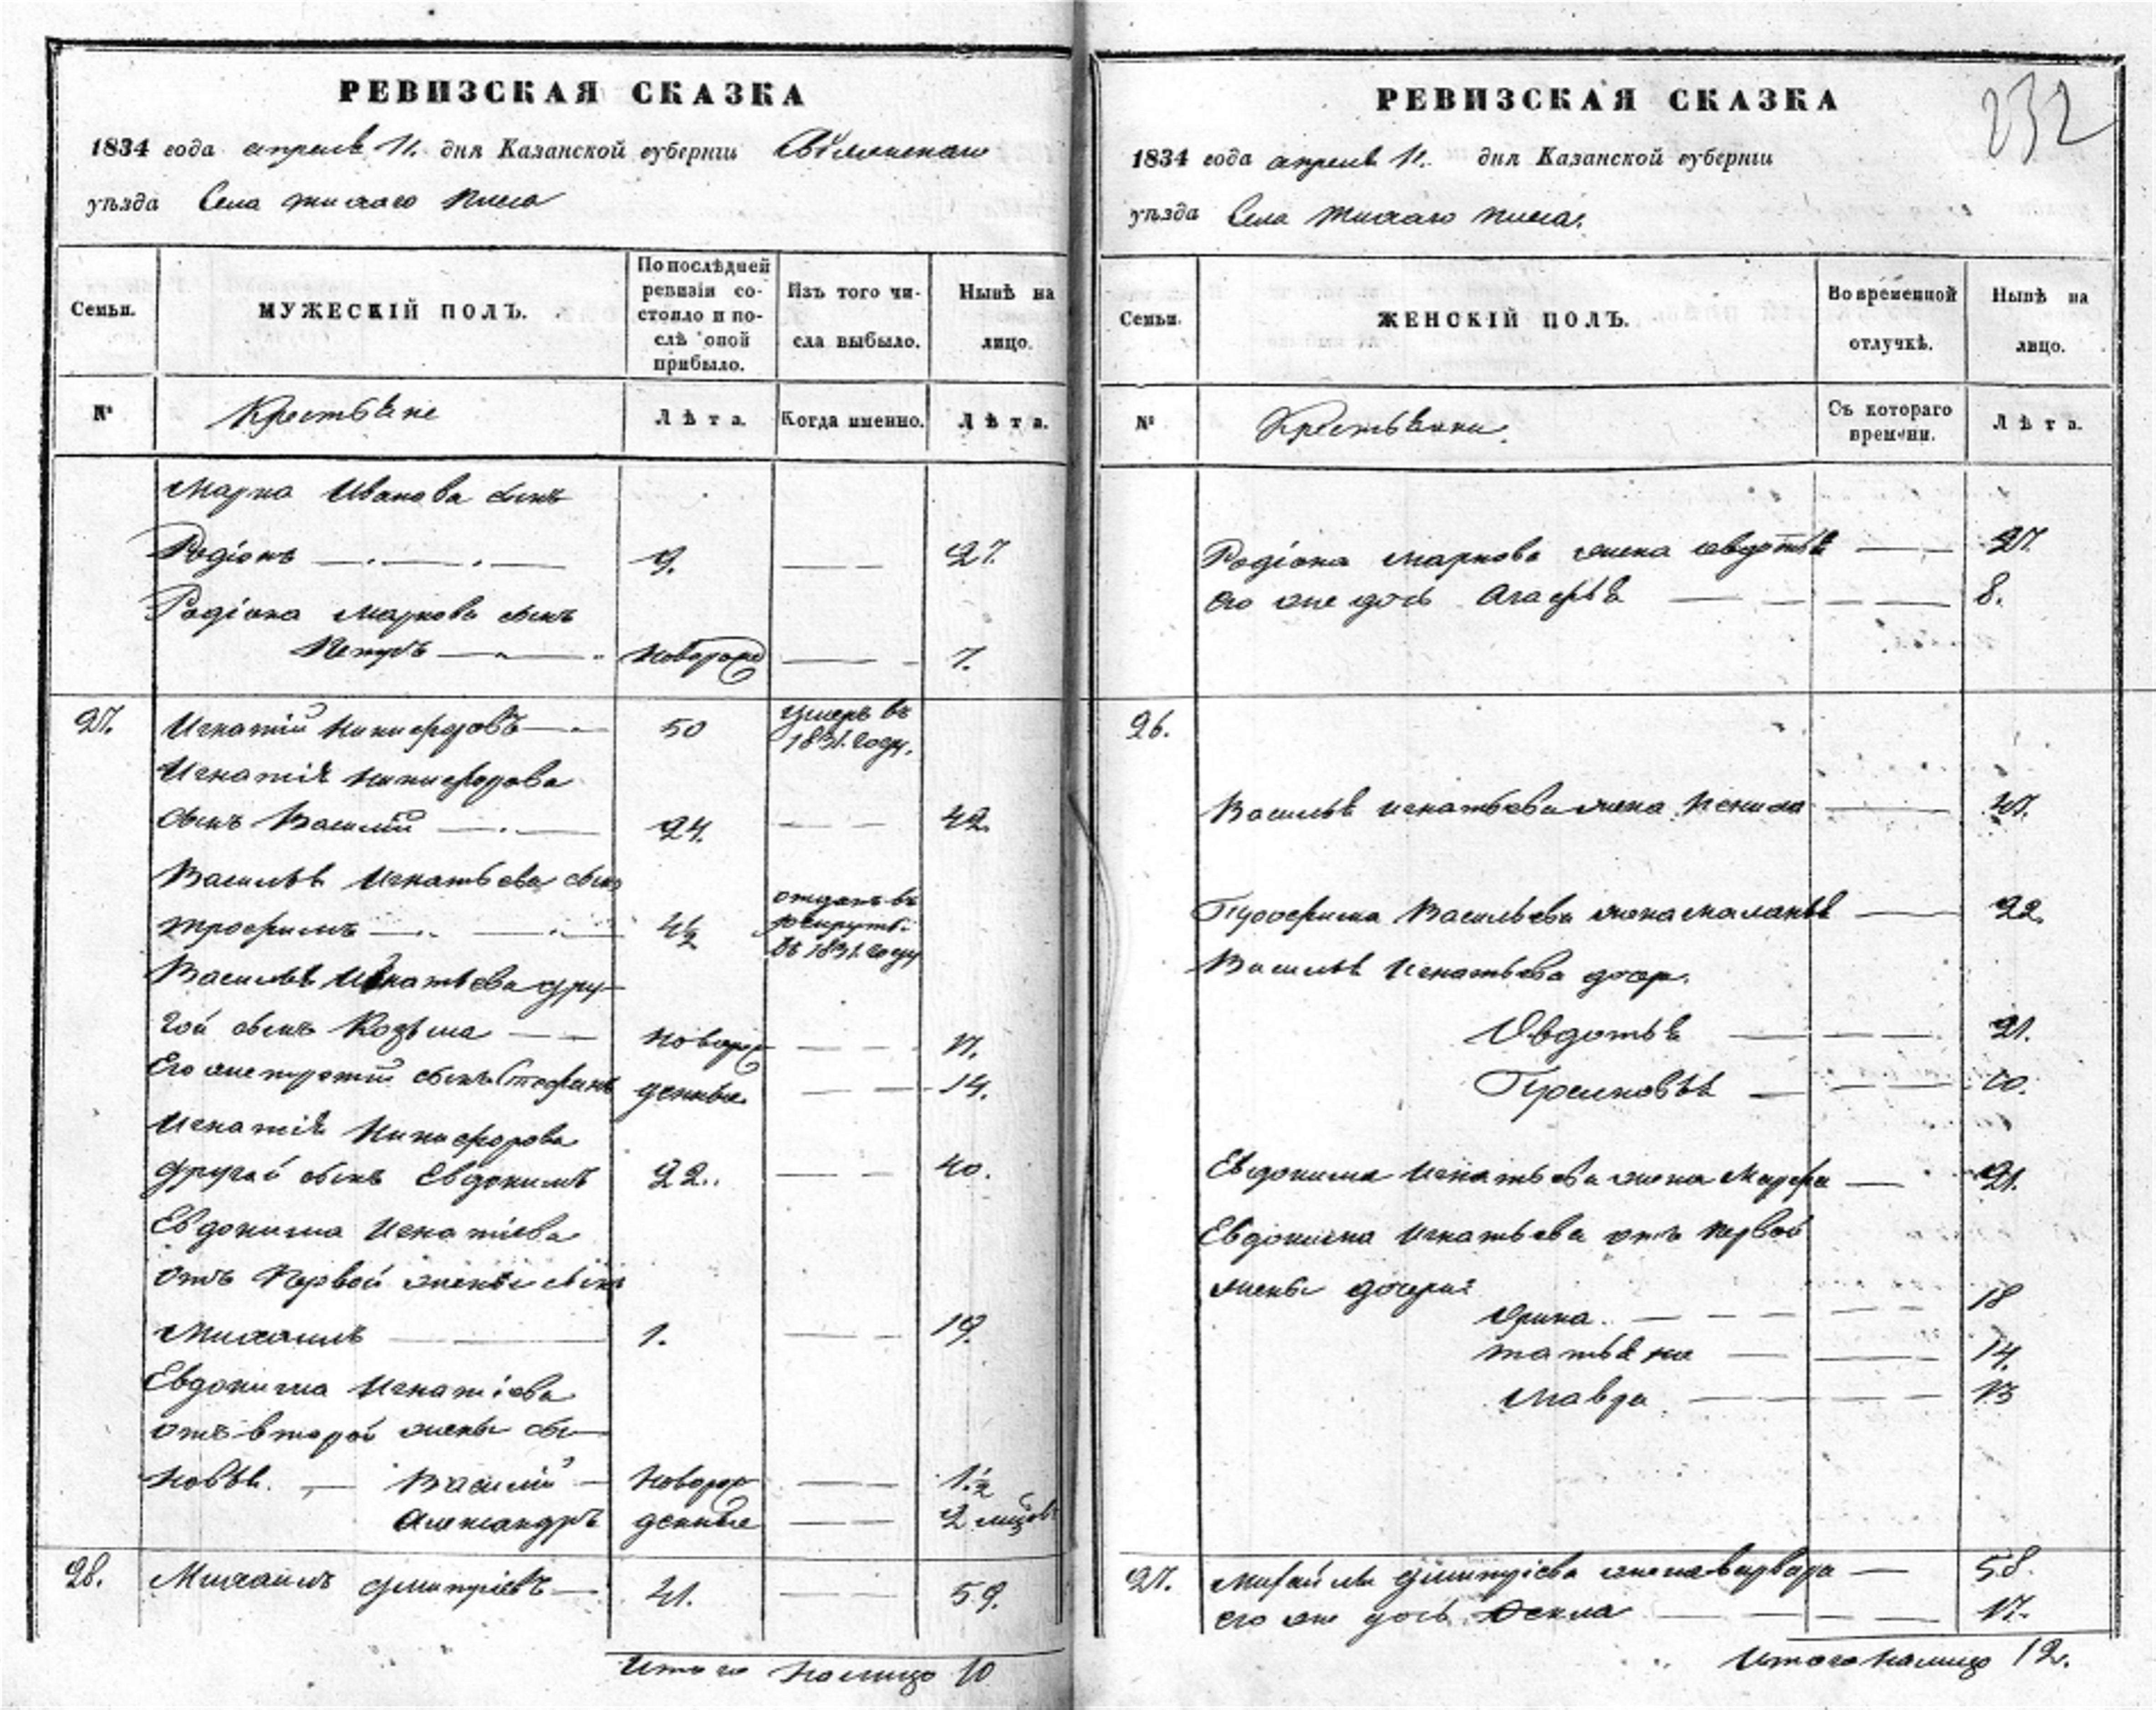 РЕВИЗСКАЯ СКАЗКА
1834 года апреля 11. дня Казанской губернии
уѣзда Села Тихаго Плеса
Семьи.
МУЖЕСКІЙ ПОЛЪ.
По послѣдней
ревизіи со-
стояло и по-
слѣ оной
прибыло.
Изъ того чи-
сла выбыло.
Нынѣ на
лицо.
№
Крестьяне
Лѣта.
Когда именно.
Лѣта.
Марка Иванова сынъ
Родіонъ 9. 27.
Родіона Маркова сынъ
Петръ новорож 7.
27. Игнатій Никифоровъ 50 умеръ въ
1831. году.
Игнатія Никифорова
сынъ Василій 24. 42.
Василья Игнатьева сынъ
Трофимъ 4½ отданъ въ
рекруты
въ 1831. году
Василья Игнатьева дру-
гой сынъ Козьма новорож 17.
Его же третій сынъ Стефанъ денные 14.
Игнатія Никифорова
другой сынъ Евдокимъ 22. 40.
Евдокима Игнатіева
отъ первой жены сынъ
Михаилъ 1. 19.
Евдокима Игнатіева
отъ второй жены сы-
новья. Василій новорож 1½
Александръ денные 2 мицовъ
28. Михаилъ Дмитріевъ 41. 59.
Итого налицо 10
РЕВИЗСКАЯ СКАЗКА
232
1834 года апреля 11. дня Казанской губерніи
уѣзда Села Тихаго Плеса.
Семьи.
ЖЕНСКІЙ ПОЛЪ.
Во временной
отлучкѣ.
Нынѣ на
лицо.
№
Крестьянки.
Съ котораго
времени.
Лѣта.
Родіона Маркова жена Авдотья 27.
Его же дочь Агафья 8.
26.
Василья Игнатьева жена 47.
Трофима Васильева жена Маланья 22.
Василья Игнатьева дочери.
Овдотья 21.
10.
Евдокима Игнатьева жена Марфа
Евдокима Игнатьева отъ первой
жены дочери:
Орина. 18
Татьяна 14.
Мавра 13
27. Михайлы Дмитріева жена Варвара 58.
его же дочь Ѳекла 17.
Итого налицо 12.